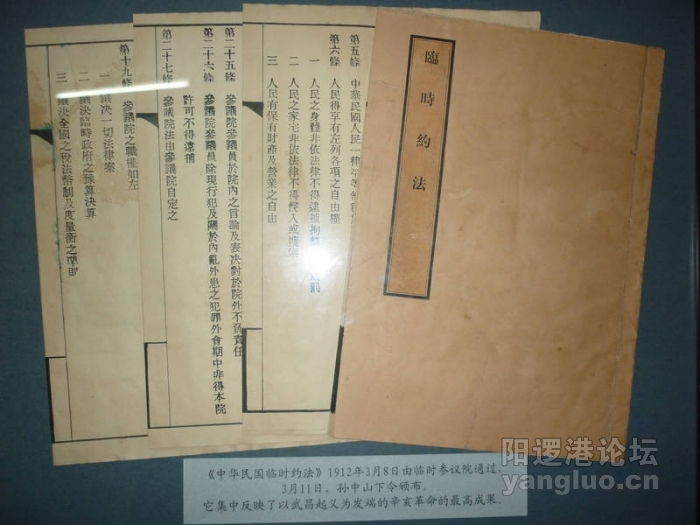 臨時約法
第五條 中華民國人民一律平等無種
第六條 人民得享有左列各項之自由權
一 人民之身體非依法律不得逮捕拘
二 人民之家宅非依法律不得侵入或搜
三 人民有保有財產及營業之自由
第二十五條 參議院參議員於院內之言論及表决對於院外不負責任
第二十六條 參議院參議員除現行犯及關於內亂外患之犯罪外會期中非得本院
許可不得逮捕
第二十七條 參議院法由參議院自定之
第十九條 參議院之職權如左
一 議决一切法律案
二 議决臨時政府之預算决算
三 議决全國之稅法幣制及度量衡之準則
《中华民国临时约法》1912年3月8日由临时参议院通过,
3月11日,孙中山下令颁布。
它集中反映了以武昌起义为发端的辛亥革命的最高成果.
阳逻港论坛
yangluo.cn